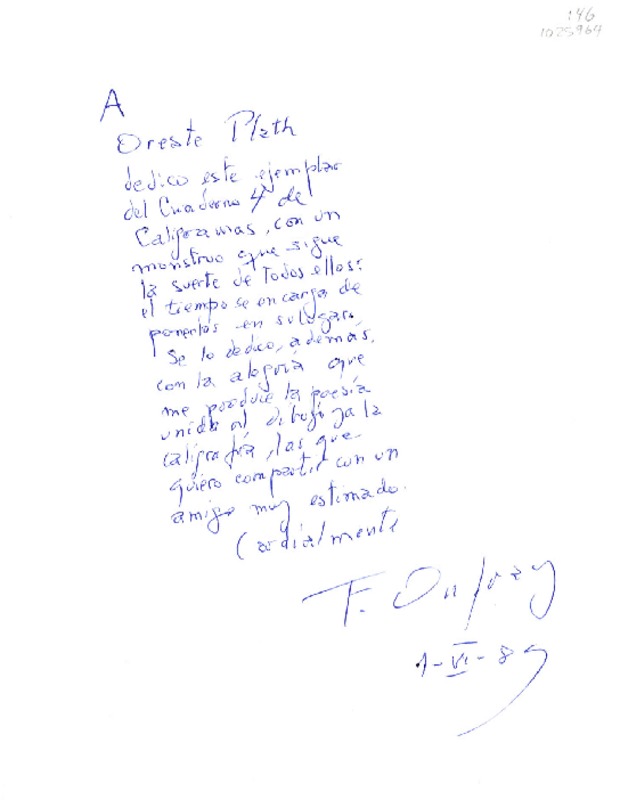 146
1025964
A
Oreste Plath
dedico este ejemplar
del Cuaderno 4 de
Caligramas, con un
monstruo que sigue
la suerte de todos ellos:
el tiempo se encarga de
ponerlos en su lugar.
Se lo dedico, además,
con la alegría que
me produce la poesía
unida al dibujo y a la
caligrafía, las que
quiero compartir con un
amigo muy estimado.
Cordialmente
T. Onfray
1-VI-89